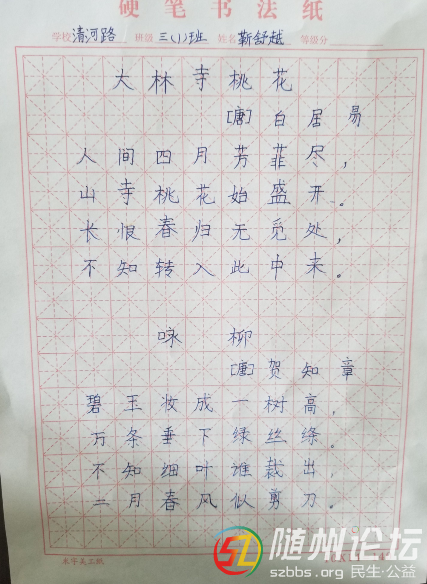 硬笔书法纸
学校清河路 班级三(1)班 姓名靳舒越 等级分
大林寺桃花
[唐]白居易
人间四月芳菲尽，
山寺桃花始盛开。
长恨春归无觅处，
不知转入此中来。
咏柳
[唐]贺知章
碧玉妆成一树高，
万条垂下绿丝绦。
不知细叶谁裁出，
二月春风似剪刀。
随州论坛
szbbs.org 民生·公益